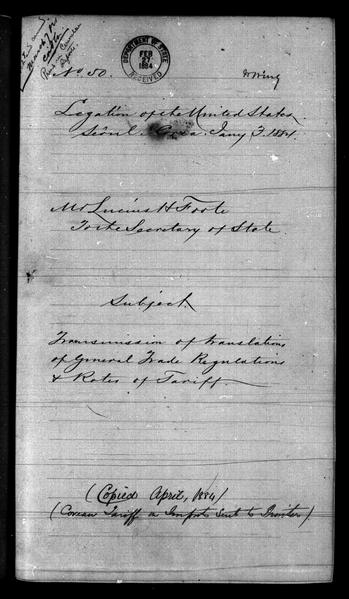 March 7
DEPARTMENT OF STATE
FEB
27
1884
RECEIVED
No. 50.
Legation of the United States.
Seoul, Corea. Jany 3. 1884.
Mr Lucius H Foote
To the Secretary of State.
Subject.
Transmission of translations
of General Trade Regulations
& Rates of Tariff
(Copied April, 1884)
(Corean Tariff on Imports sent to Printer)